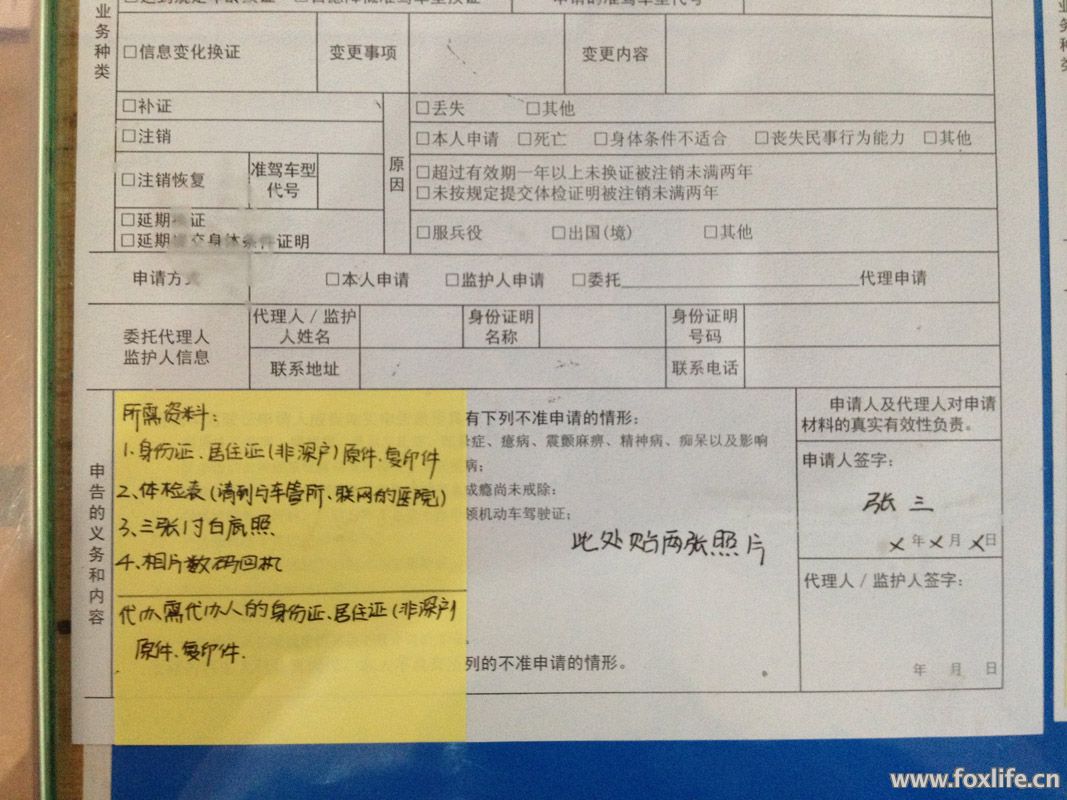 业务种类
□信息变化换证 变更事项 变更内容
□补证 □丢失 □其他
□注销 □本人申请 □死亡 □身体条件不适合 □丧失民事行为能力 □其他
原因
□注销恢复 准驾车型代号 □超过有效期一年以上未换证被注销未满两年
□未按规定提交体检证明被注销未满两年
□延期换证 □服兵役 □出国(境) □其他
□延期提交身体条件证明
申请方式 □本人申请 □监护人申请 □委托 代理申请
委托代理人
监护人信息
代理人/监护人姓名 身份证明名称 身份证明号码
联系地址 联系电话
申告的义务和内容
所需资料:
1.身份证、居住证(非深户)原件、复印件
2、体检表(请到与车管所、联网的医院)
3、三张1寸白底照
4、相片数码回执
代办需代办人的身份证、居住证(非深户)
原件、复印件.
有下列不准申请的情形:
症、癔病、震颤麻痹、精神病、痴呆以及影响
病;
成瘾尚未戒除:
领机动车驾驶证;
此处贴两张照片
列的不准申请的情形。
申请人及代理人对申请
材料的真实有效性负责。
申请人签字:
张三
X年X月X日
代理人/监护人签字:
年 月 日
www.foxlife.cn